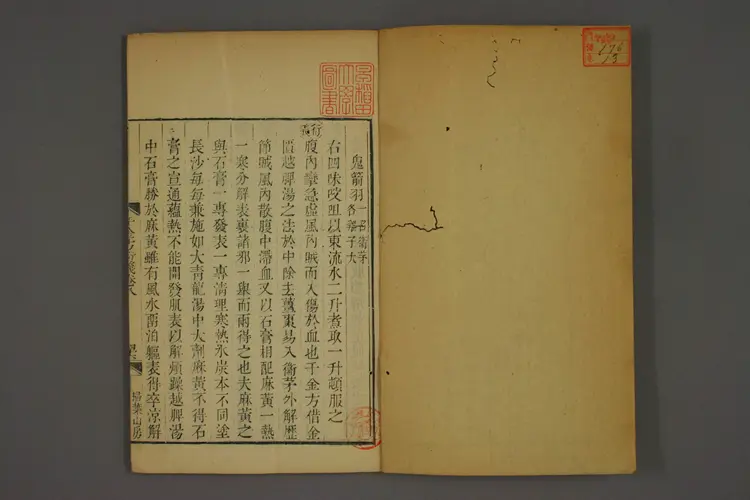 鬼箭羽一名衛矛
各雞子大
右四味㕮咀以東流水二升煮取一升頓服之
衍義
腹內攣急虛風內賊而入傷於血也千金方借金
匱越脾湯之法於中除去薑棗易入衛茅外解歷
節賊風內散腹中滯血又以石膏相配麻黃一熱
一寒分解表裏諸邪一舉而兩得之也夫麻黃之
與石膏一專發表一專清理寒熱氷炭本不同塗
長沙每每兼施如大青龍湯中大劑麻黃不得石
膏之宣通蘊熱不能開發肌表以解煩躁越脾湯
中石膏勝於麻黃雖有風水畱泊軀表得卒涼解
千金方衍義卷八
掃葉山房
京都帝國大學圖書
176